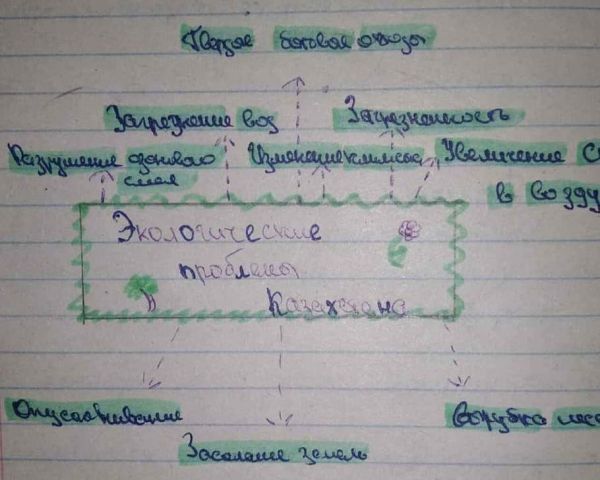 Твердые бытовые отходы
Загрязнение воз
Загрязненность
Разрушение озонового
слоя
Изменение климата
Увеличение C
в возду
Экологические
проблемы
Казахстана
Опустынивание
Вырубка леса
Засоление земель